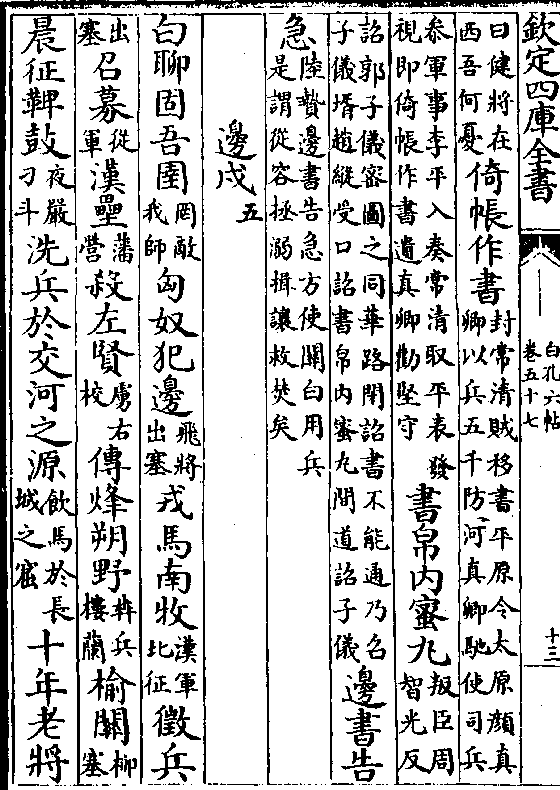 欽定四庫全書
白孔六帖
卷五十七
十三
曰健將在
西吾何憂
倚帳作書
封常清賊移書平原令太原顔真
卿以兵五千防河真卿馳使司兵
叅軍事李平入奏常清取平表發
視即倚帳作書遺真卿勸堅守
書帛内蜜丸
叛臣周
智光反
詔郭子儀密圖之同華路閉詔書不能通乃召
子儀壻趙縱受口詔書帛内蜜丸間道詔子儀
邊書告
急
陸贄邊書告急方使關白用兵
是謂從容拯溺揖讓救焚矣
邊戍
五
白聊固吾圉
罔敵
我師
匈奴犯邊
飛將
出塞
戎馬南牧
漢軍
北征
徵兵
出
塞
召募
從
軍
漢壘
藩
營
殺左賢
虜右
校
傳烽朔野
兵
樓蘭
榆關
柳
塞
晨征鞞鼓
夜嚴
刁斗
洗兵於交河之源
飲馬於長
城之窟
十年老將